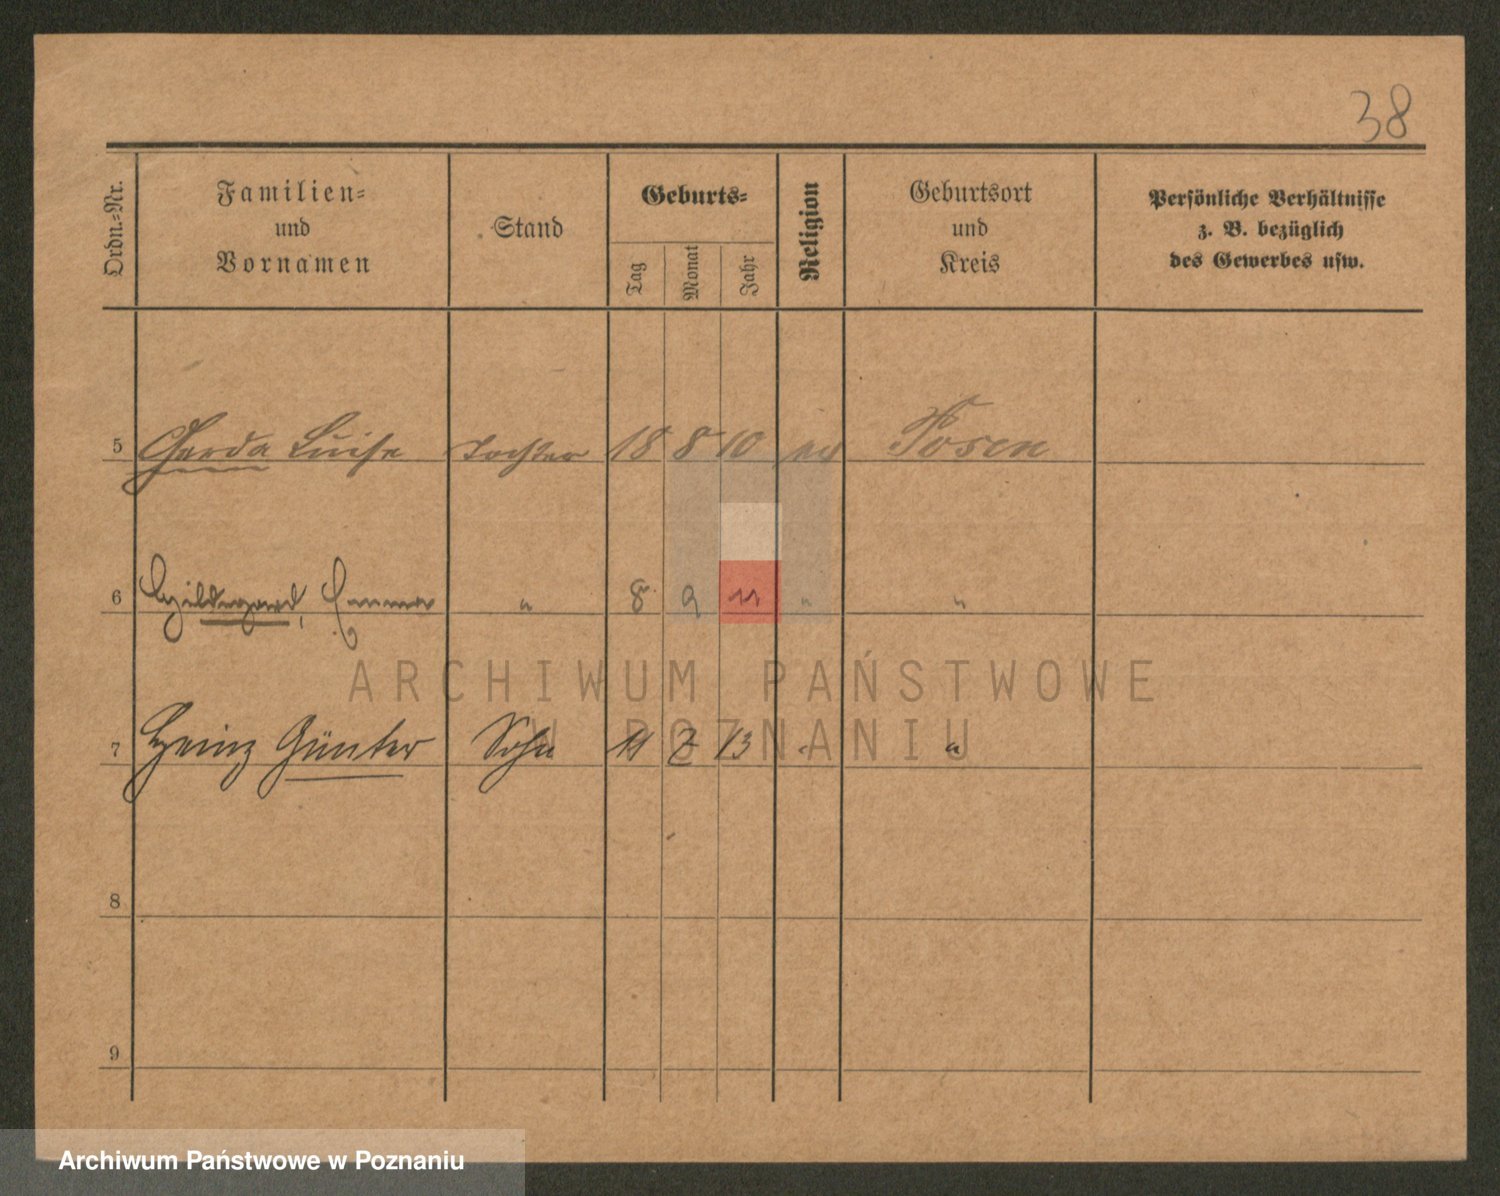 38
Ordn.=Nr.
Familien=
und
Vornamen
Stand
Geburts=
Tag
Monat
Jahr
Religion
Geburtsort
und
Kreis
Persönliche Verhältnisse
z. B. bezüglich
des Gewerbes usw.
5 Gerda Luise Tochter 18 8 10 ev Posen
6 Hildegard, Emma " 8 9 11 " "
ARCHIWUM PAŃSTWOWE
W POZNANIU
7 Heinz Günter Sohn 11 2 13 " "
8
9
Archiwum Państwowe w Poznaniu